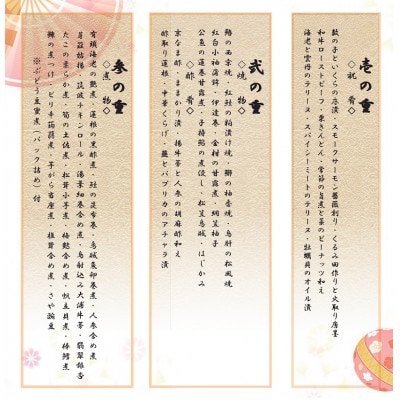 壱の重
◇祝肴◇
数の子といくらの彩漬・スモークサーモン薔薇創り・くるみ田作りと火取り唐墨
和牛ローストビーフ・栗きんとん・常節の旨煮と菜のピーナッツ和え
海老と雲丹のテリーヌ・スパイシーミートのテリーヌ・牡蠣のオイル漬
弐の重
◇焼物◇
鰆の西京焼・紅鮭の粕漬け焼・鰤の柚香焼・鳥肝の松風焼
紅白小袖蒲鉾・伊達巻・金柑の甘露煮・網笠柚子
公魚の蓮巻甘露煮・子持鮎の煮浸し・松笠烏賊・はじかみ
◇酢肴◇
京なます・ままかり漬・揚牛蒡と人参の胡麻酢和え
酢取り蓮根・中華くらげ・蕪とパプリカのアチャラ漬
参の重
◇煮物◇
有頭海老の艶煮・蓮根の黒酢煮・鮭の昆布巻・烏賊莵印巻煮・人参含め煮
君菰姑揚・筑波チキンロール・湯葉細巻含め煮・鳥射込み大浦牛蒡・翡翠銀杏
たこの柔らか煮・筍の土佐煮・松茸小芋煮・梅麩含め煮・帆立貝煮・棒鱈煮
鰊の煮つけ・ピリ辛蒟蒻煮・子がら当座煮・椎茸含め煮・さや豌豆
※ぶどう豆蜜煮(パック詰め)付